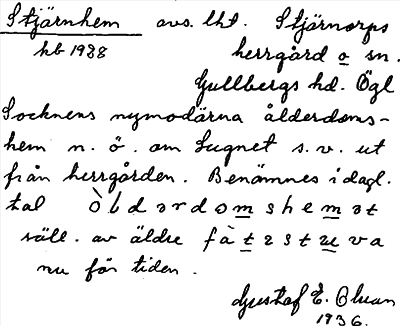 Stjärnhem avs. lht. Stjärnorps
kb 1938 herrgård o sn.
Gullbergs hd. Ögl
Socknens nymodärna ålderdoms-
hem n. ö. om Lugnet s. v. ut
från herrgården. Benämnes i dagl.
tal òldərdomshemət
säll. av äldre fàtəstuva
nu för tiden.
Gustaf E.
1936.